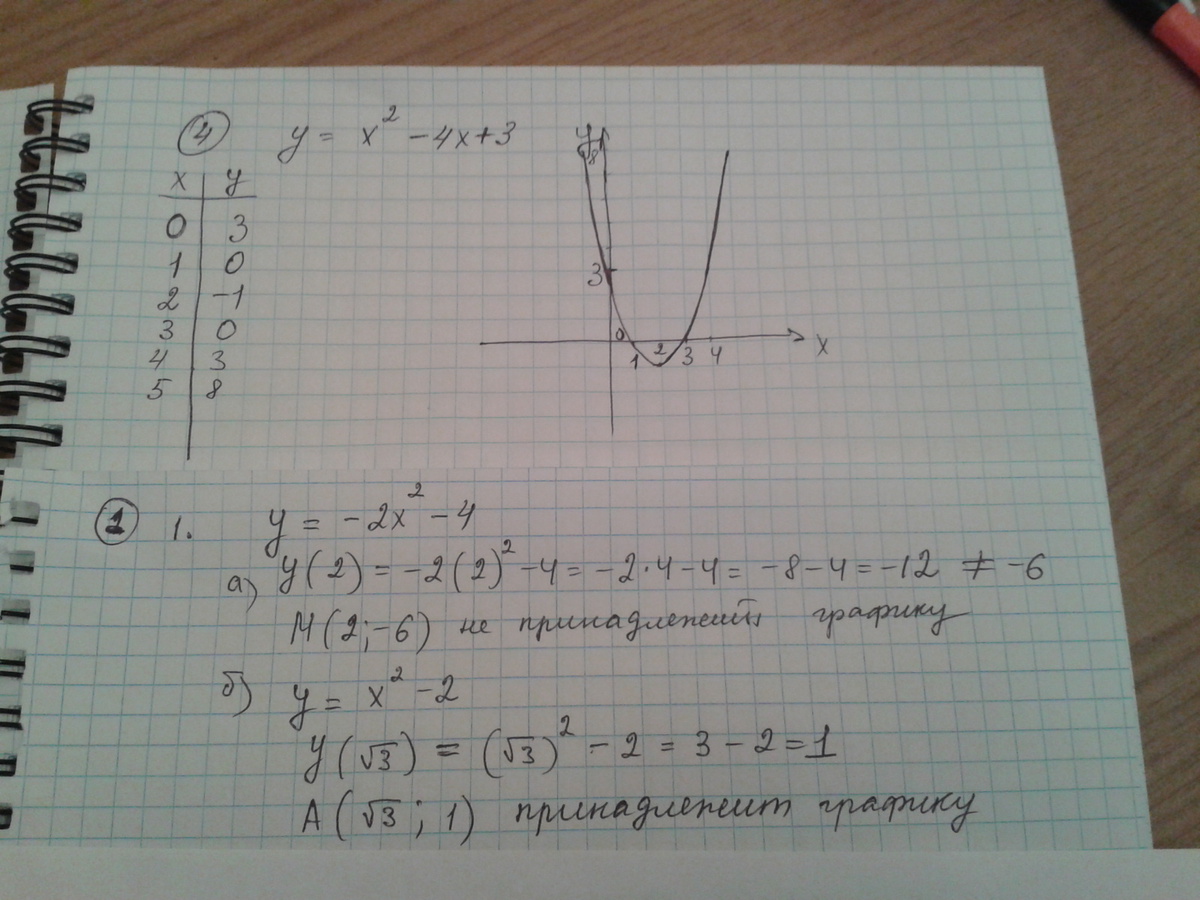 ④ y = x² - 4x + 3
x | y
0 | 3
1 | 0
2 | -1
3 | 0
4 | 3
5 | 8
y
8
3
0 1 2 3 4 x
① 1. y = -2x² - 4
а) y(2) = -2(2)² - 4 = -2·4 - 4 = -8 - 4 = -12 ≠ -6
M(2; -6) не принадлежит графику
б) y = x² - 2
y(√3) = (√3)² - 2 = 3 - 2 = 1
A(√3; 1) принадлежит графику